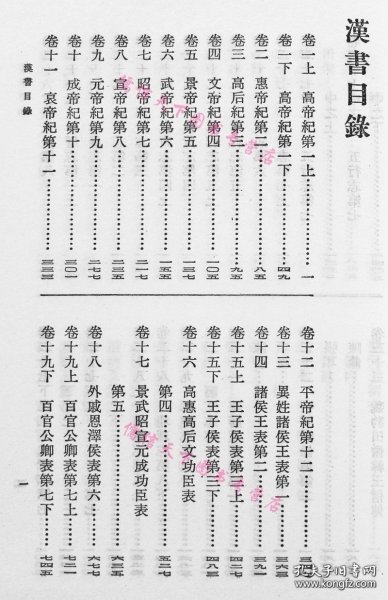 漢書目錄
卷一上　高帝紀第一上……一
卷一下　高帝紀第一下……四九
卷二　惠帝紀第二……八五
卷三　高后紀第三……九五
卷四　文帝紀第四……一〇五
卷五　景帝紀第五……一三七
卷六　武帝紀第六……一五五
卷七　昭帝紀第七……二一七
卷八　宣帝紀第八……二三五
卷九　元帝紀第九……二七七
卷十　成帝紀第十……三〇一
卷十一　哀帝紀第十一……三三三
卷十二　平帝紀第十二……
卷十三　異姓諸侯王表第一……三六三
卷十四　諸侯王表第二……三九一
卷十五上　王子侯表第三上……四二七
卷十五下　王子侯表第三下……四八三
卷十六　高惠高后文功臣表
第四……五二七
卷十七　景武昭宣元成功臣表
第五……六三五
卷十八　外戚恩澤侯表第六……六七七
卷十九上　百官公卿表第七上……七二一
卷十九下　百官公卿表第七下……七四五
漢書目錄
一
孔夫子旧书网